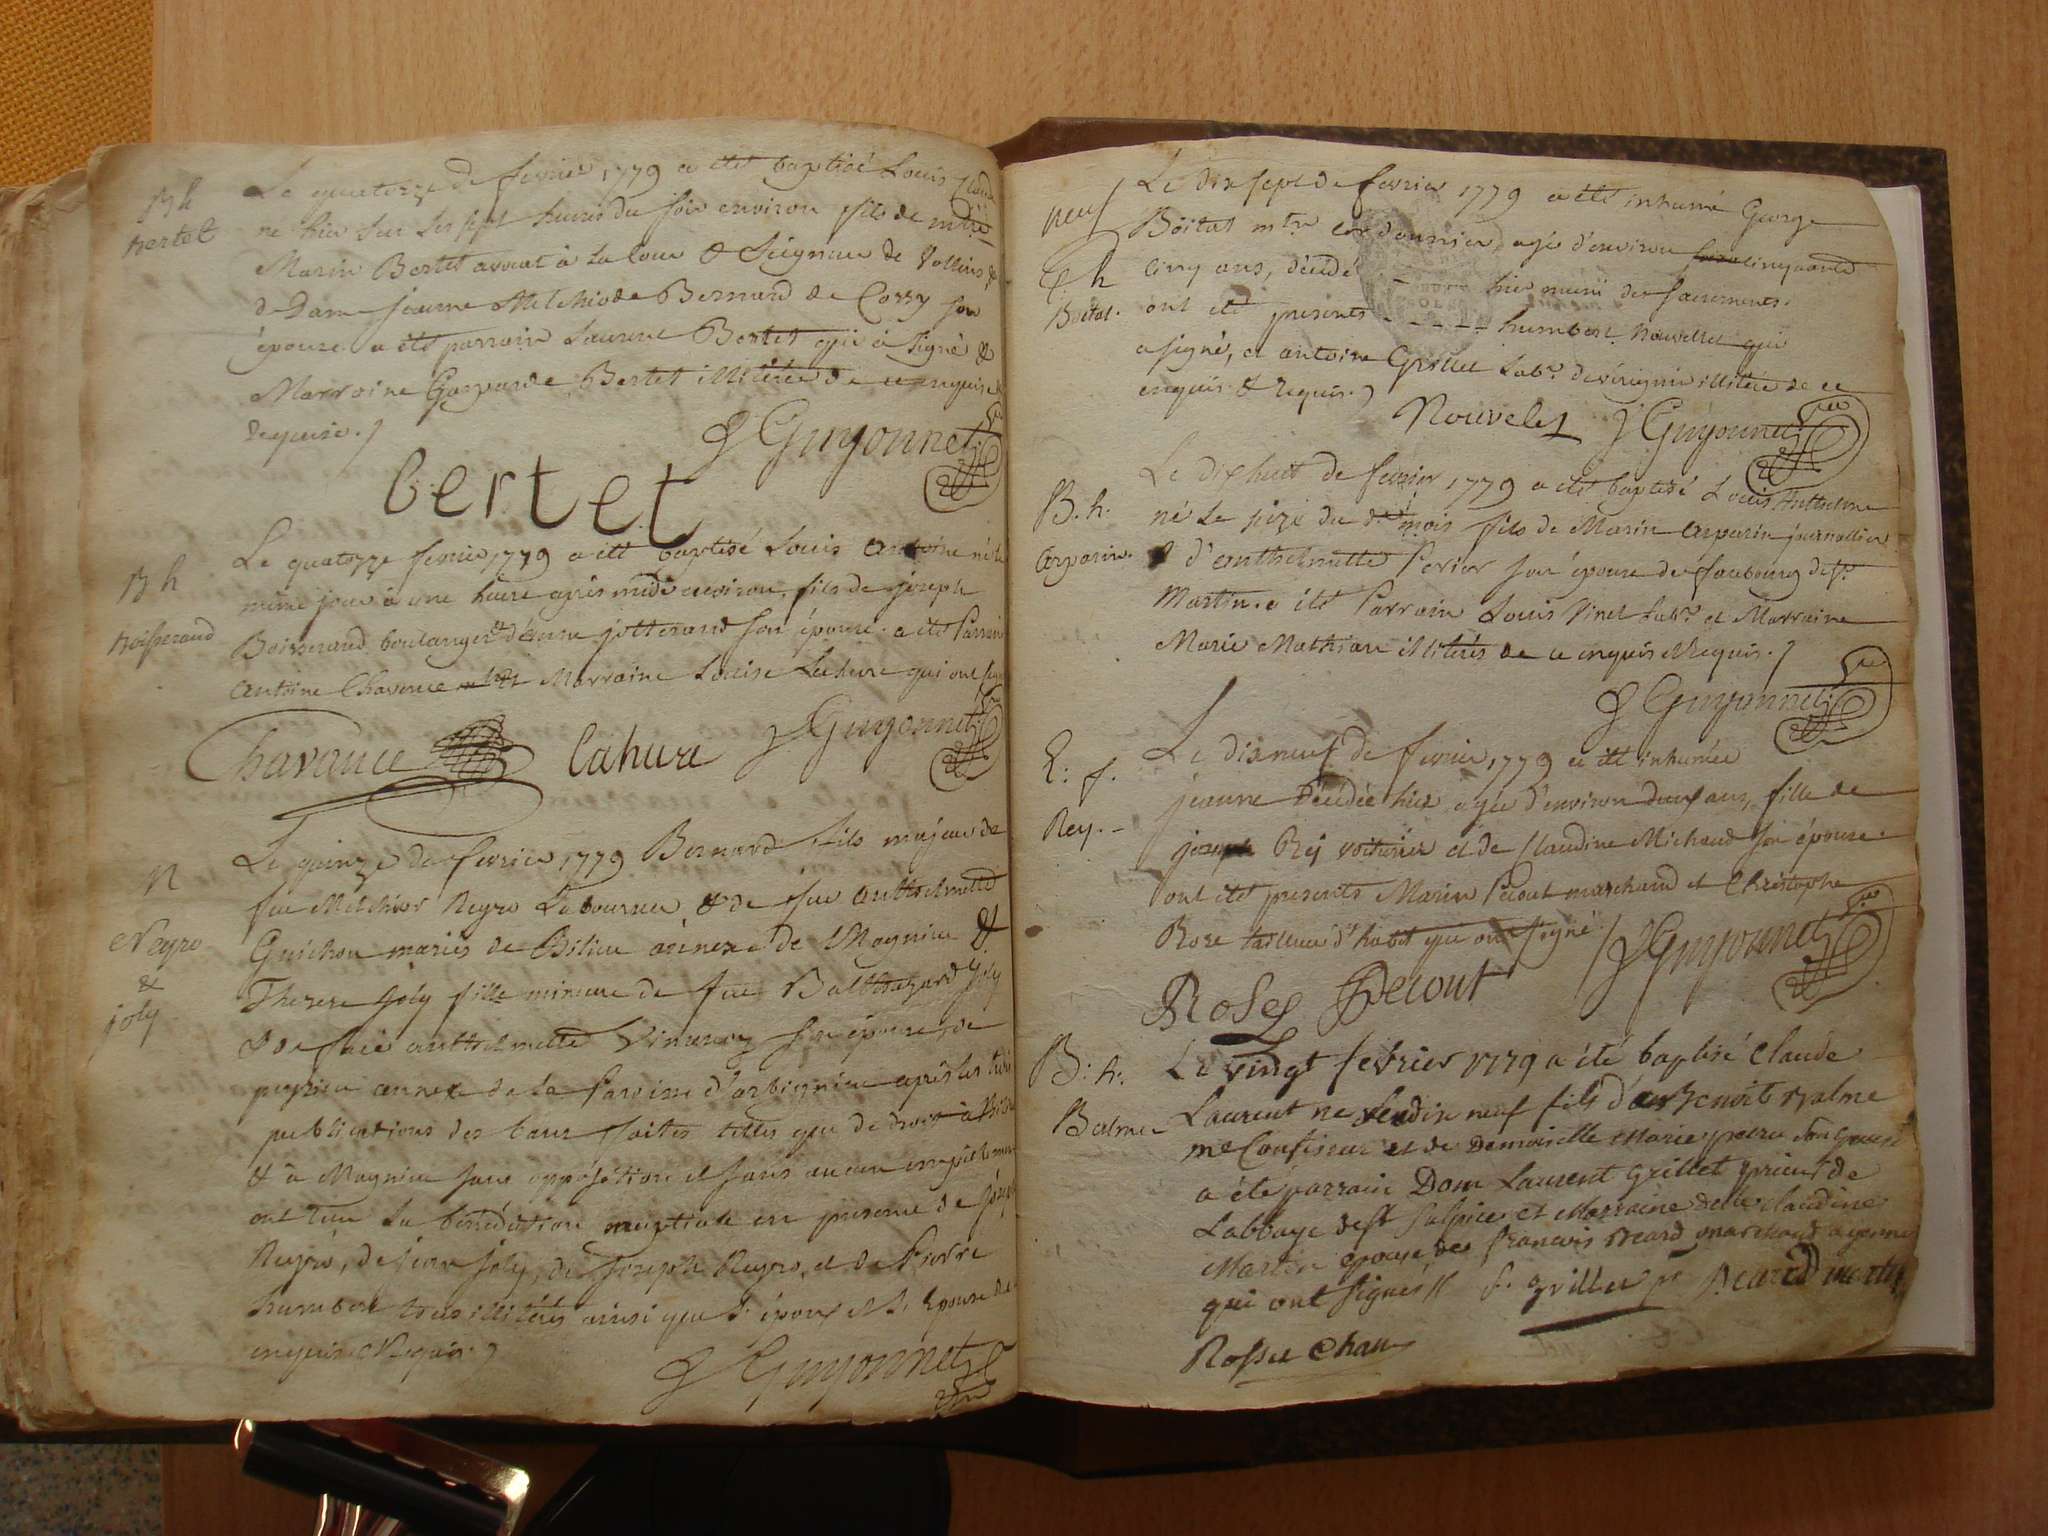 B h
Bertet
Le quatorze de fevrier 1779 a eté baptisé Louis Claude
ne hier sur les sept heures du soir environ fils de mtre
Marin Bertet avocat à la cour & Seigneur de Vollins &
de Dame jeanne Melchiode Bernard de Cozzy son
épouze. a eté parrain Laurent Bertet qui à signé &
Marraine Gasparde Bertet illiterée de ce enquise &
Requise.
Guyonnet
bertet
B h
boisserand
Le quatozze fevrier 1779 a eté baptisé Louis antoine né le
même jour à une heure après midi environ, fils de joseph
Boisserand boulanger et d'anne jotterand son épouse. a eté Parrain
antoine Chavance et Marraine Louise Lahure qui ont signé
Chavance Lahure Guyonnet
N
Neyro
&
joly
Le quinze de fevrier 1779 Bernard fils majeur de
feu Melchior Neyro Laboureur & de feue anthelmette
Guichon mariés de Bilieu annexe de Magnieu &
Therese Joly fille mineure de feu Balthazard Joly
& de anthelmette Vincency son épouse, de
peyrieu annexe de la Paroisse d'arbignieu après les trois
publications des bans faites telles que de droit à
& à Magnieu sans opposition et sans aucun empêchement
ont reçu la bénédiction nuptiale en presence de
Neyro, de jean joly, de joseph Neyro, et de Pierre
humbert tous illitérés ainsi que l. époux et l. Epouse de ce
enquis & Requis.
Guyonnet
neuf
E. h
Boitat.
Le dix sept de fevrier 1779 a eté inhumé George
Boitat mtre cordonnier, agé d'environ cinquante
cinq ans, décédé - hier muni des sacrements.
ont eté presents - - - - - humbert Nouvellet qui
a signé, et antoine Grillet Labr. illitéré de ce
enquis & Requis.
Nouvelet Guyonnet
B. h.
Carparin.
Le dixhuit de fevrier 1779 a eté baptisé Louis Anthelme
né le seize du dt mois fils de Marin Carparin journallier
& d'anthelmette Perier son épouse de faubourg de St.
Martin. a eté Parrain Louis Vinet Labr. et Marraine
Marie Mathian illitérés de ce enquis & Requis.
Guyonnet
E: f.
Rey. -
Le dixneuf de fevrier 1779 a eté inhumée
jeanne Décédée hier agée d'environ deux ans, fille de
joseph Rey voiturier et de Claudine Michaud son épouse.
ont eté presents Marin Pecout marchand et Christophe
Roze tailleur d'habit qui ont signé.
Guyonnet
Roses Pecout
B: h:
Balme
Le vingt fevrier 1779 a été baptisé Claude
Laurent ne le dix neuf fils d' Benoit Balme
me Confiseur et de Demoiselle Marie son epouse
a été parrain Dom Laurent Grillet prieur de
Labbaye de st Sulpice et Marraine delle claudine
Martin epouse de francois Beard marchand a yenne
qui ont signés // f. grillet pr Beard martin
Rosset Chan